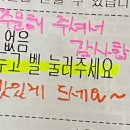 주문해 주셔서
감사합
없음
누고 벨 눌러주세요
맛있게 드세요~